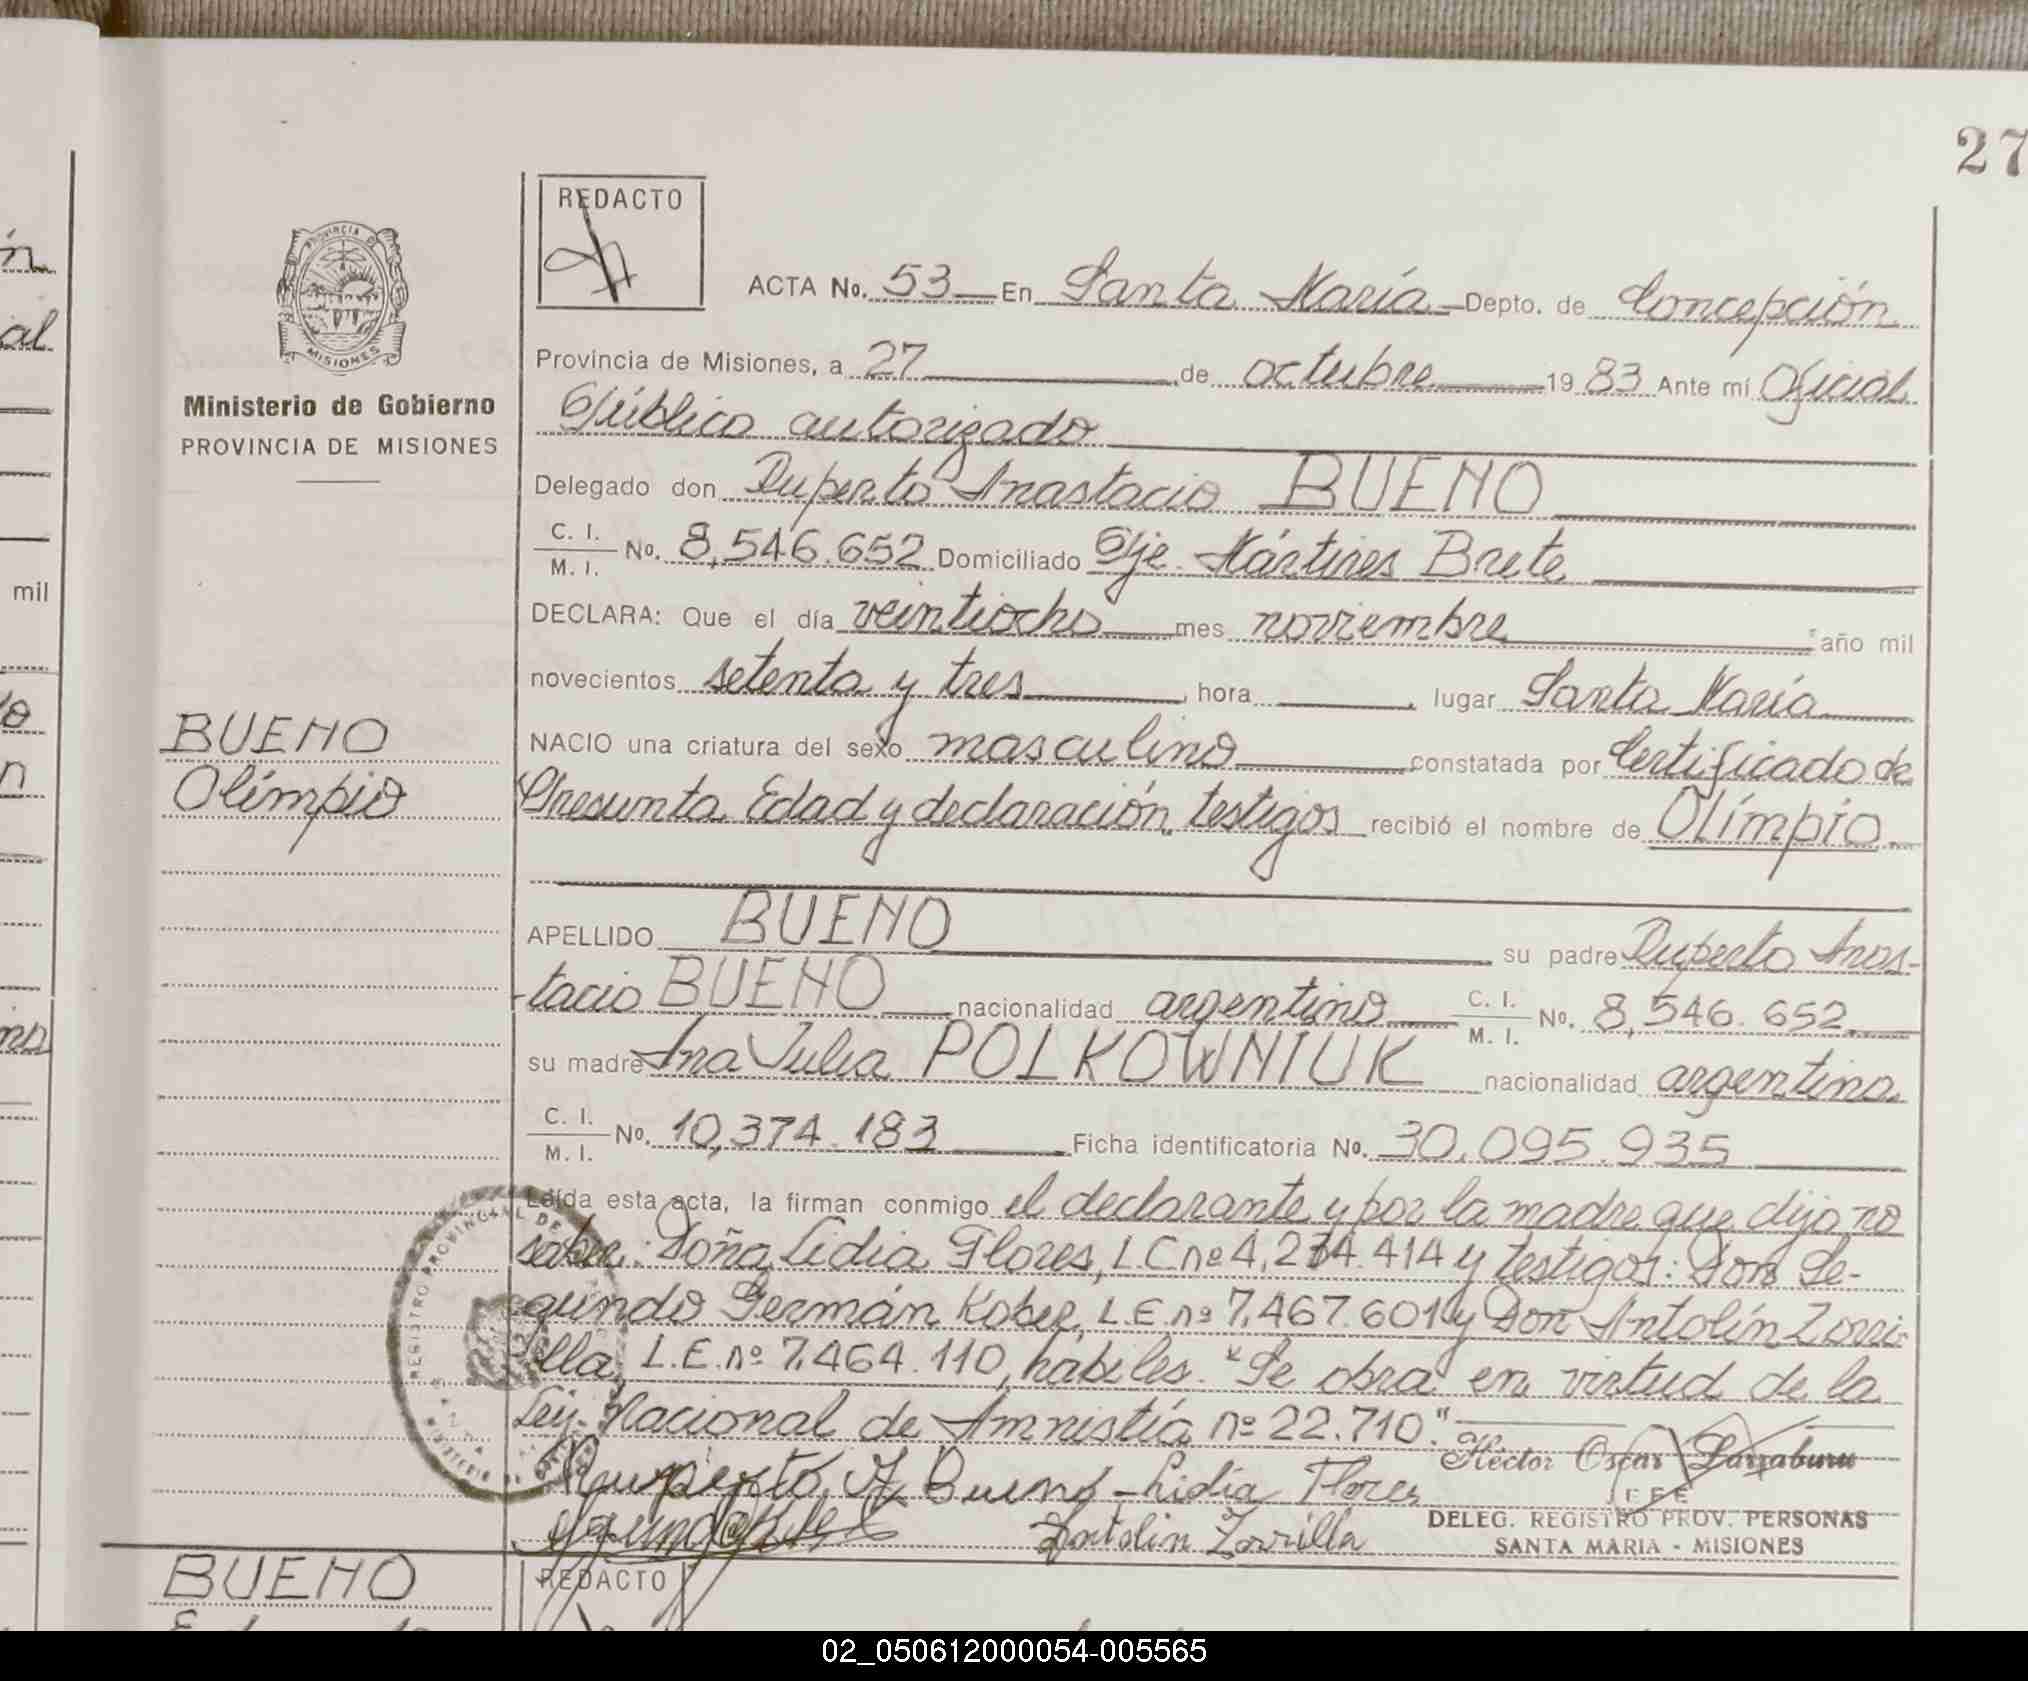 27
REDACTO
ACTA No. 53 En Santa María Depto. de Concepción
Provincia de Misiones, a 27 de octubre 1983 Ante mí Oficial
Público autorizado
Delegado don Ruperto Anastacio BUENO
C. I.
M. I. No. 8,546.652 Domiciliado Pje. Mártires Brete
DECLARA: Que el día veintiocho mes noviembre año mil
novecientos setenta y tres, hora lugar Santa María
NACIO una criatura del sexo masculino constatada por Certificado de
Presunta Edad y declaración testigos recibió el nombre de Olímpio
APELLIDO BUENO su padre Ruperto Anas-
tacio BUENO nacionalidad argentino C. I. M. I. No. 8,546.652
su madre Ana Julia POLKOWNIUK nacionalidad argentina
C. I.
M. I. No. 10,374.183 Ficha identificatoria No. 30.095.935
Leída esta acta, la firman conmigo el declarante y por la madre que dijo no
saber: Doña Lidia Flores, L.C nº 4,274.414 y testigos: Don Se-
gundo Germán Kober, L.E. nº 7.467.601 y Don Antolín Zorri-
lla, L.E. nº 7.464.110, hábiles. "Se obra en virtud de la
Ley Nacional de Amnistía nº 22.710."
Ruperto A Bueno Lidia Flores
Antolin Zorrilla
Héctor Oscar Larraburu
JEFE
DELEG. REGISTRO PROV. PERSONAS
SANTA MARIA - MISIONES
PROVINCIA DE
MISIONES
Ministerio de Gobierno
PROVINCIA DE MISIONES
BUENO
Olímpio
REGISTRO PROVINCIAL DE
BUENO
REDACTO
mil
02_050612000054-005565